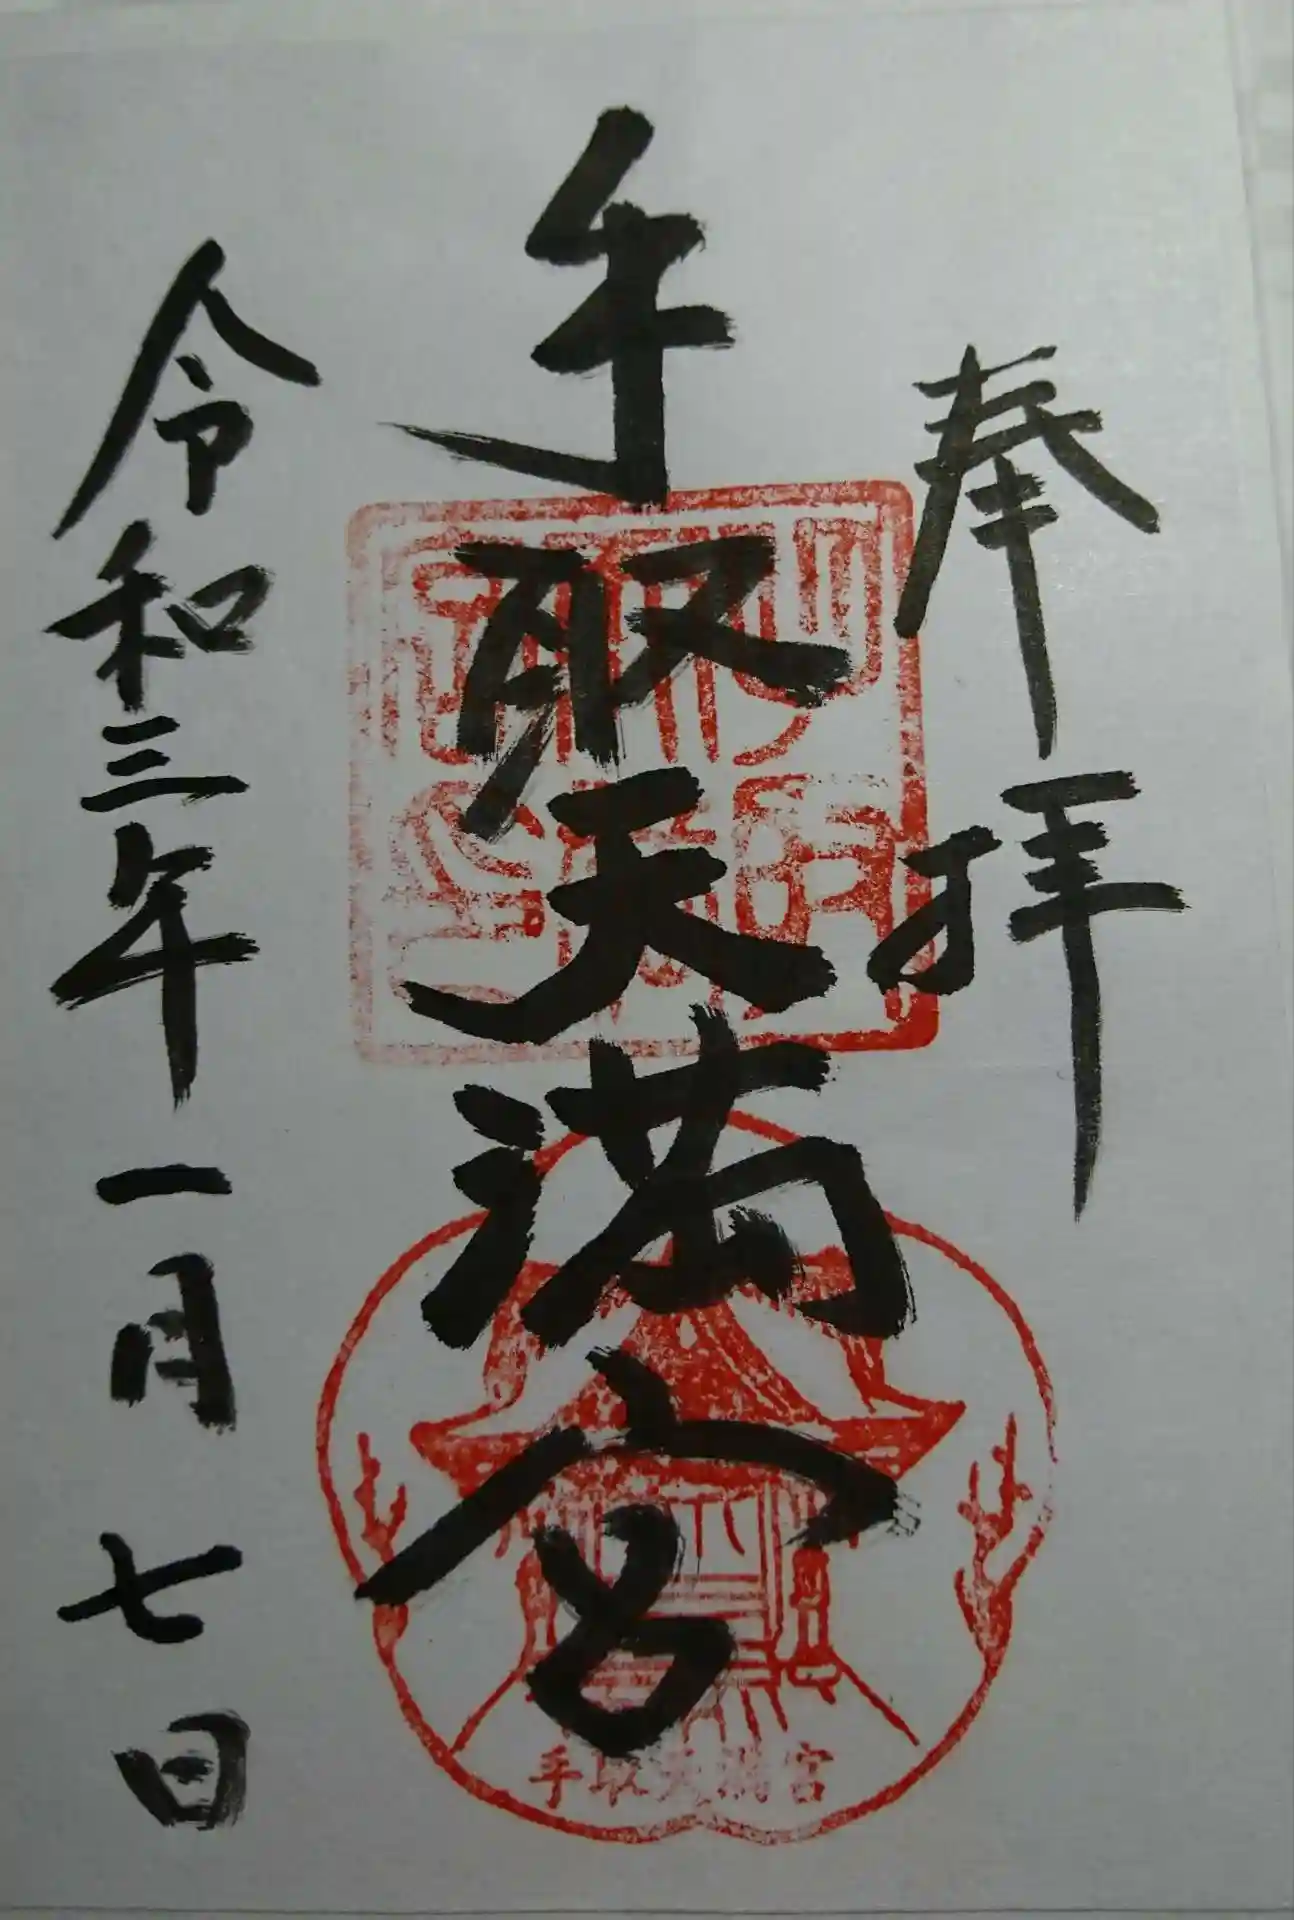 奉拝
手取天満宮
令和三年一月七日
手取天満宮